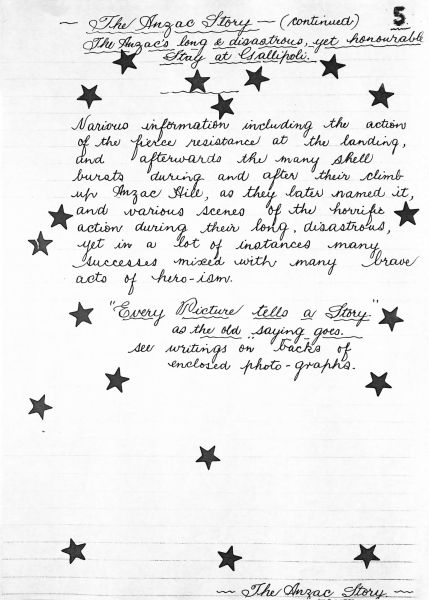 5
— The Anzac Story — (continued)
The Anzac's long & disastrous, yet honourable
Stay at Gallipoli.
Various information including the action
of the fierce resistance at the landing,
and afterwards the many shell
bursts during and after their climb
up Anzac Hill, as they later named it,
and various scenes of the horrific
action during their long, disastrous,
yet in a lot of instances many
successes mixed with many brave
acts of hero-ism.
"Every Picture tells a Story."
as the old "saying" goes.
see writings on backs of
enclosed photo-graphs.
— The Anzac Story. —